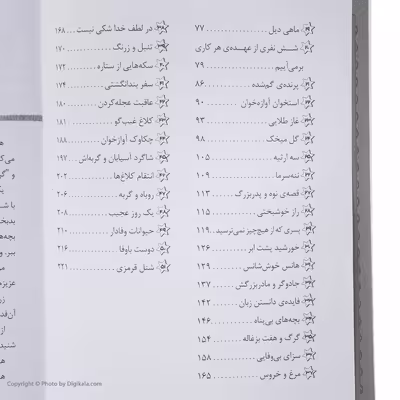 ماهی دیل ........ ۷۷
شش نفری از عهده‌ی هر کاری
برمی‌آییم ........ ۷۹
پرنده‌ی گم‌شده ........ ۸۶
استخوان آوازه‌خوان ........ ۹۰
غاز طلایی ........ ۹۳
گل میخک ........ ۹۸
سه ارتیه ........ ۱۰۵
ننه‌سرما ........ ۱۰۹
قصه‌ی نوه و پدربزرگ ........ ۱۱۳
راز خوشبختی ........ ۱۱۵
پسری که از هیچ‌چیز نمی‌ترسید .. ۱۱۹
خورشید پشت ابر ........ ۱۲۶
هانس خوش‌شانس ........ ۱۲۹
جادوگر و مادربزرگش ........ ۱۳۷
فایده‌ی دانستن زبان ........ ۱۴۲
بچه‌های بی‌پناه ........ ۱۴۶
گرگ و هفت بزغاله ........ ۱۵۴
سزای بی‌وفایی ........ ۱۵۸
مرغ و خروس ........ ۱۶۵
در لطف خدا شکی نیست ... ۱۶۸
تنبل و زرنگ ........ ۱۷۰
سکه‌هایی از ستاره ........ ۱۷۲
سفر بندانگشتی ........ ۱۷۴
عاقبت عجله‌کردن ........ ۱۸۰
کلاغ غیب‌گو ........ ۱۸۱
چکاوک آوازخوان ........ ۱۸۸
شاگرد آسیابان و گربه‌اش ... ۱۹۷
انتقام کلاغ‌ها ........ ۲۰۲
روباه و گربه ........ ۲۰۶
یک روز عجیب ........ ۲۰۸
حیوانات وفادار ........ ۲۱۰
دوست باوفا ........ ۲۱۶
شنل قرمزی ........ ۲۲۱
Copyright © Photo by Digikala.com